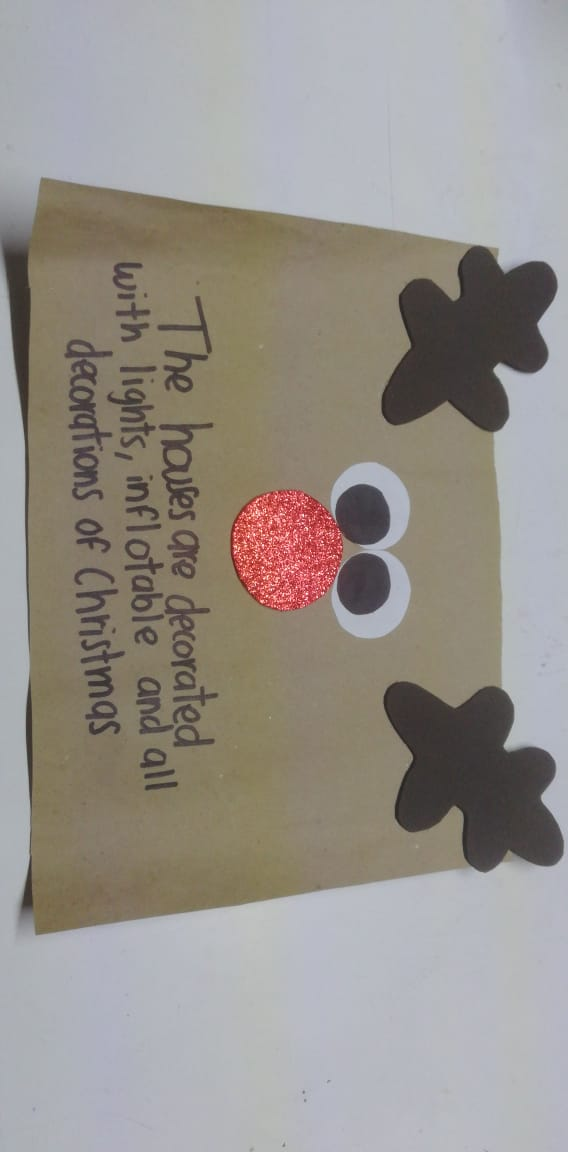 The houses are decorated
with lights, inflotable and all
decorations of Christmas